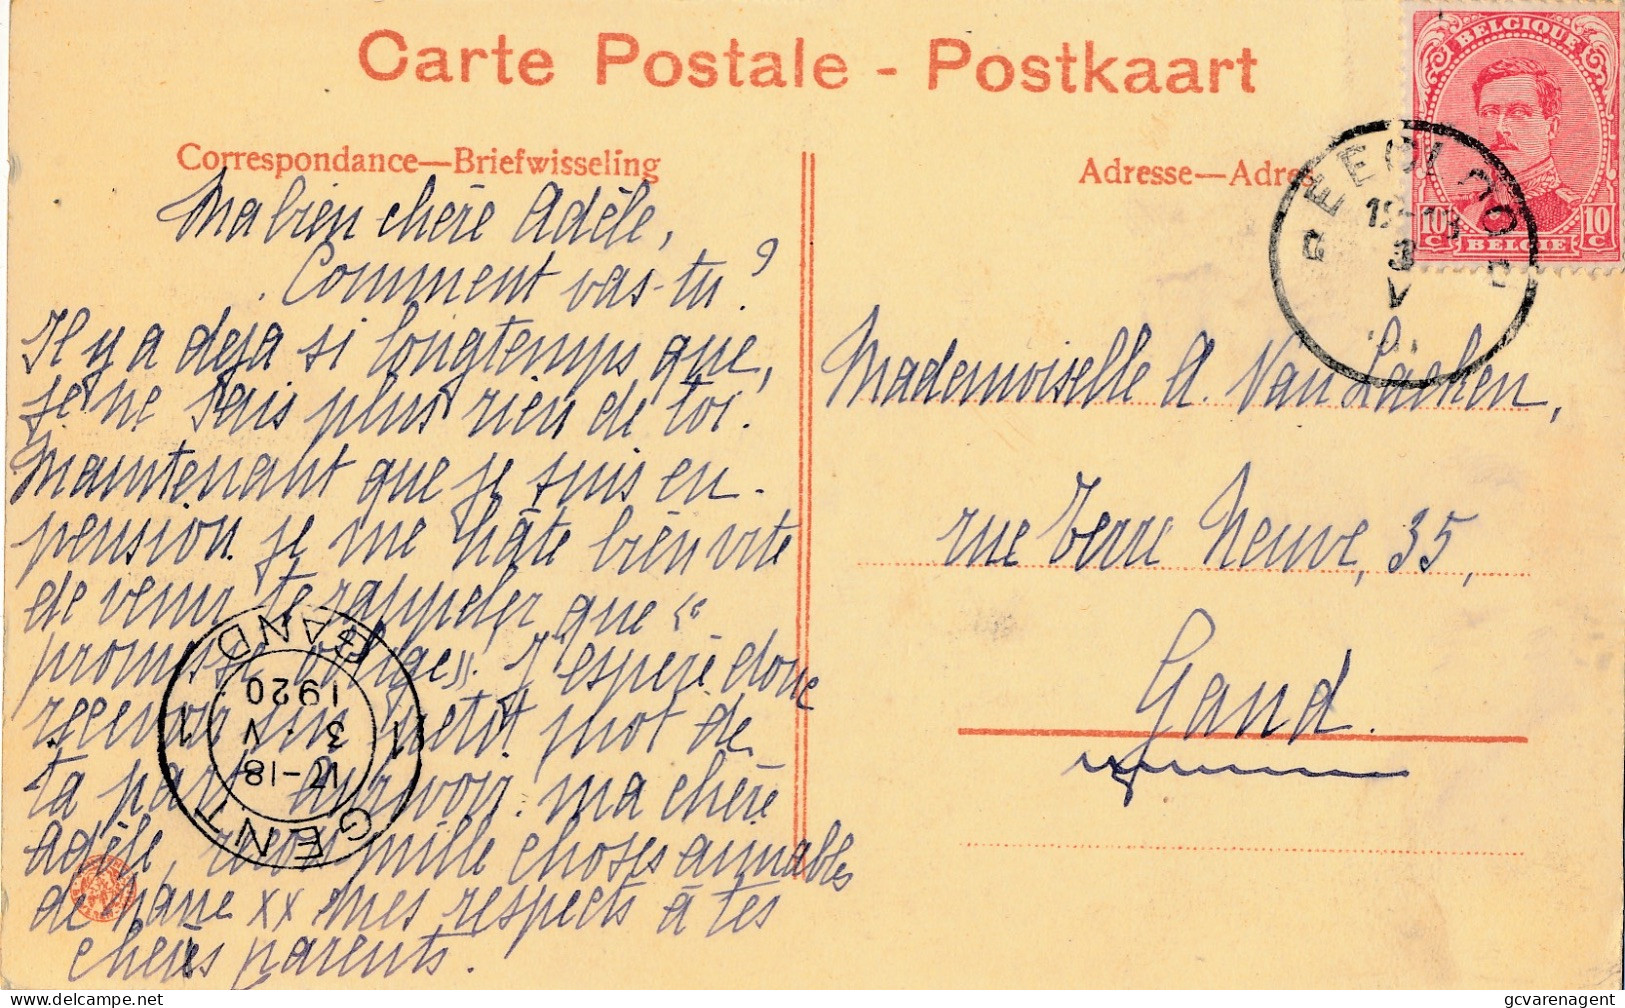 Carte Postale - Postkaart
Correspondance—Briefwisseling
Ma bien chère Adèle,
Comment vas-tu?
Il y a deja si longtemps que,
je ne sais plus rien de toi.
Maintenant que je suis en
pension je me hâte bien vite
de venir te rappeler que «
promesse oblige». J'espère donc
recevoir un petit mot de
ta part. Aurevoir ma chère
Adèle, reçois mille choses aimables
de xx mes respects à tes
chères parents.
GENT
GAND
1 1
17-18
3
V
1920
Adresse—Adres
BELGIQUE
10 C
10 C
BELGIE
3
V
Mademoiselle A. Van Laeken,
rue Terre Neuve, 35,
Gand.
gcvarenagent
www.delcampe.net